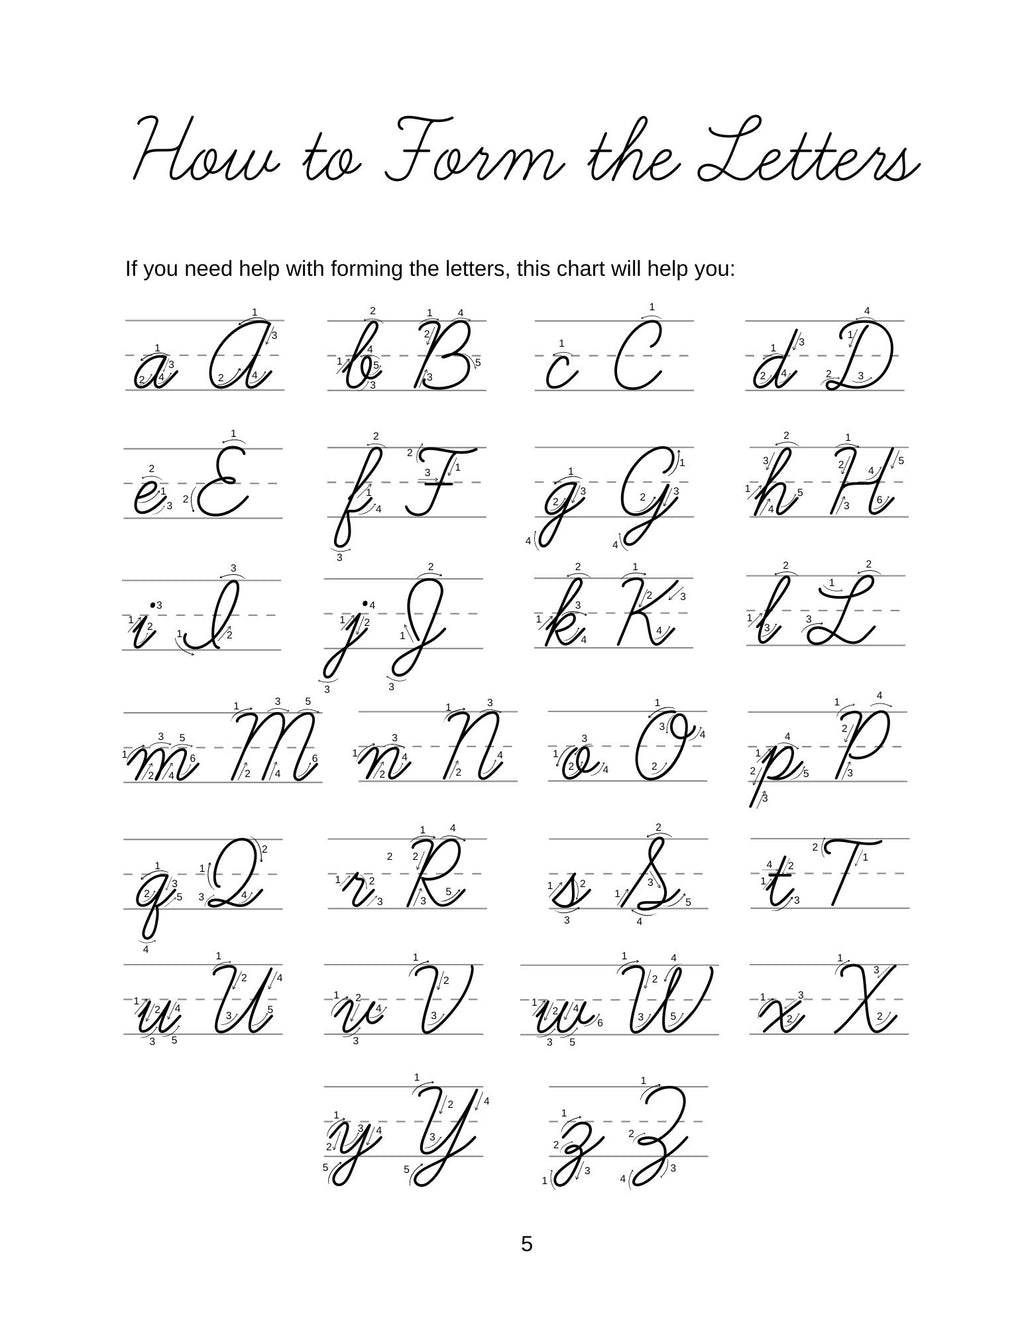 How to Form the Letters
If you need help with forming the letters, this chart will help you:
a A b B c C d D
e E f F g G h H
i I j J k K l L
m M n N o O p P
q Q r R s S t T
u U v V w W x X
y Y z Z
5